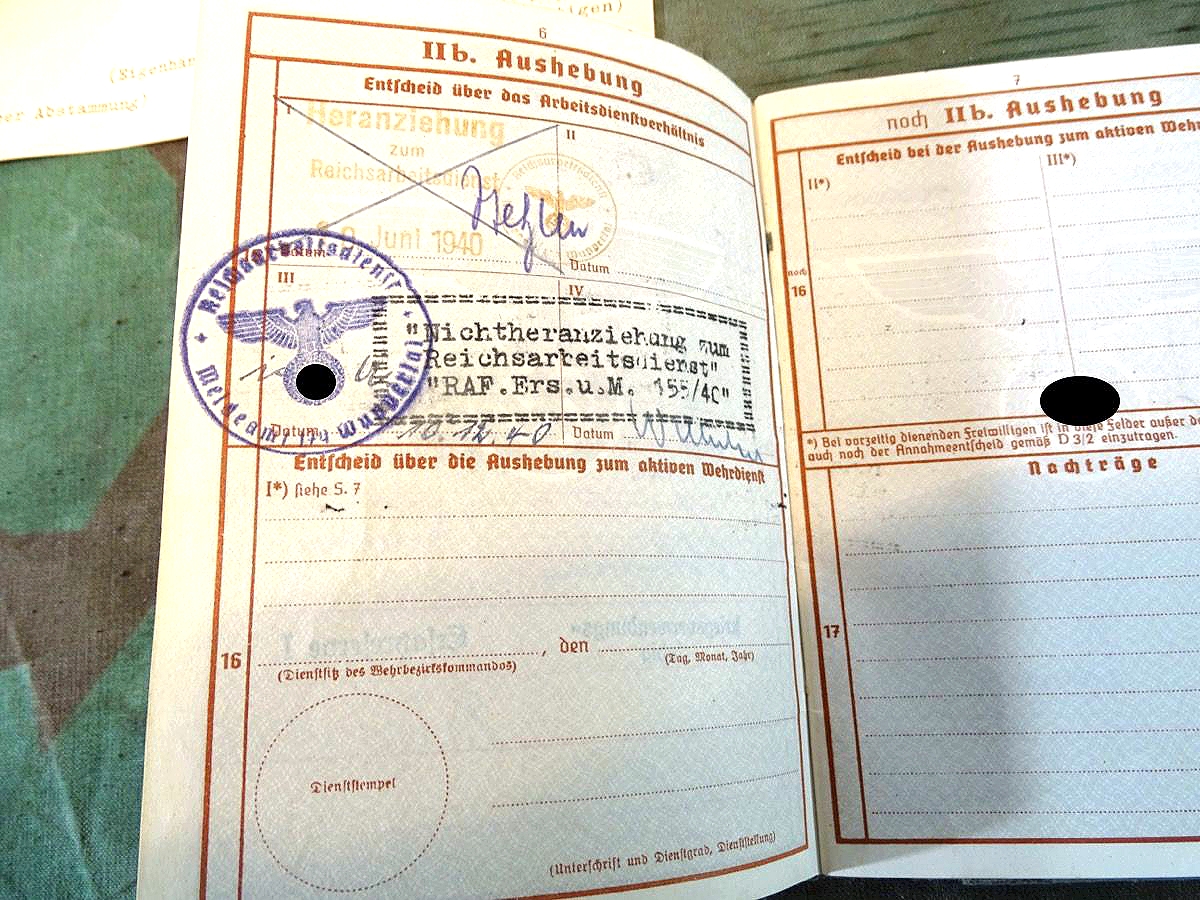 igen)
(Eigenhän
er Abstammung"
6
IIb. Aushebung
Entscheid über das Arbeitsdienstverhältnis
I
II
Heranziehung
zum
Reichsarbeitsdienst
Reichsarbeitsdienst
Wuppertal
Juni 1940
Datum
Datum
III
IV
Reichsarbeitsdienst
Meldeamt 179 Wuppertal
"Nichtheranziehung zum
Reichsarbeitsdienst"
"RAF.Ers.u.M. 155/40"
Datum
10.12.40
Datum
Entscheid über die Aushebung zum aktiven Wehrdienst
I*) siehe S. 7
16
, den
(Dienstsitz des Wehrbezirkskommandos)
(Tag, Monat, Jahr)
Dienststempel
(Unterschrift und Dienstgrad, Dienststellung)
7
noch IIb. Aushebung
Entscheid bei der Aushebung zum aktiven Wehr
II*)
III*)
noch
16
*) Bei vorzeitig dienenden Freiwilligen ist in diese Felder außer de
auch noch der Annahmeentscheid gemäß D 3/2 einzutragen.
Nachträge
17